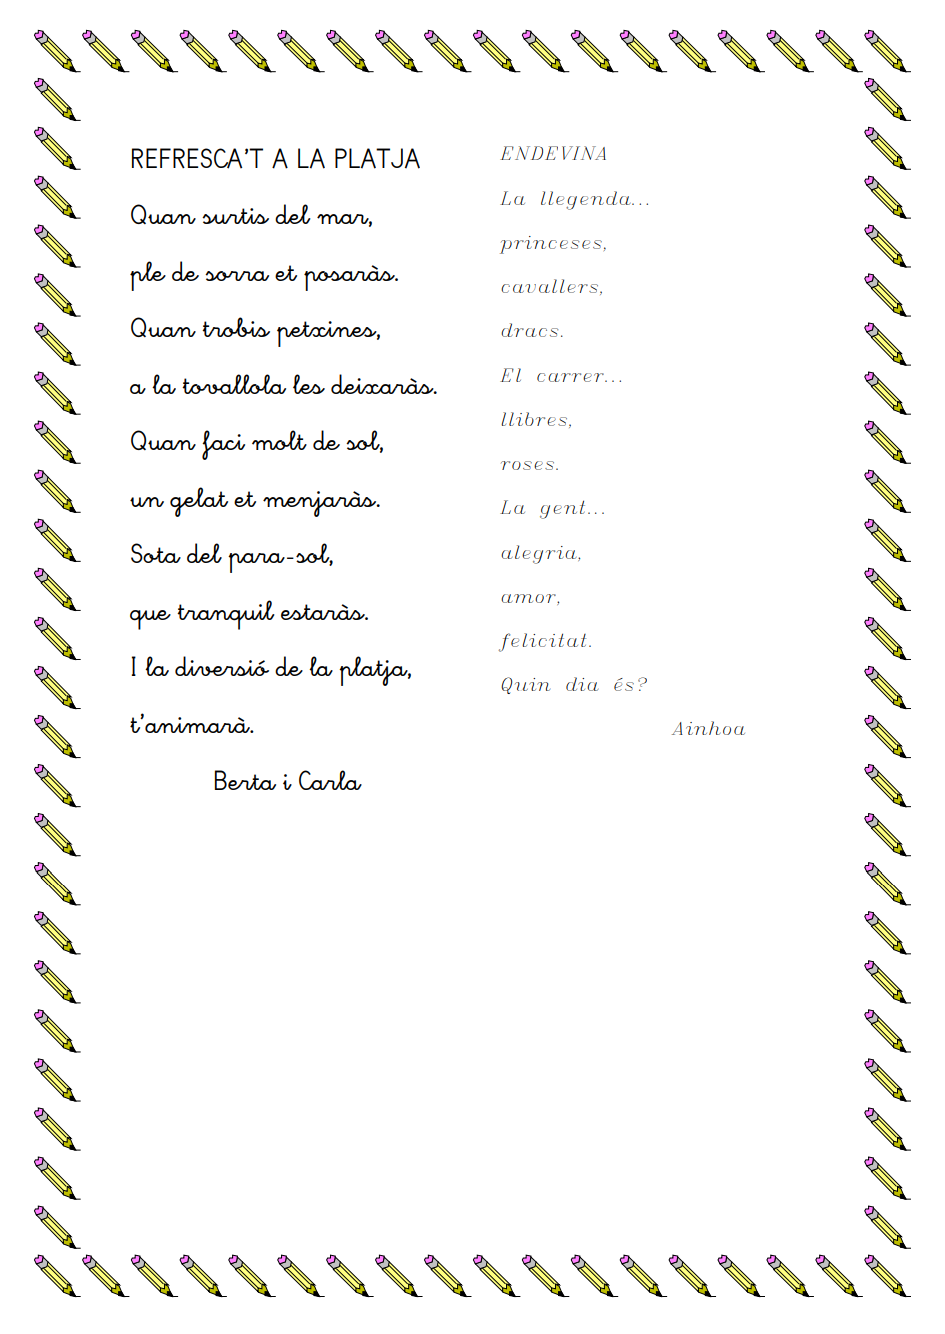 REFRESCA'T A LA PLATJA
Quan surtis del mar,
ple de sorra et posaràs.
Quan trobis petxines,
a la tovallola les deixaràs.
Quan faci molt de sol,
un gelat et menjaràs.
Sota del para-sol,
que tranquil estaràs.
I la diversió de la platja,
t'animarà.
Berta i Carla
ENDEVINA
La llegenda...
princeses,
cavallers,
dracs.
El carrer...
llibres,
roses.
La gent...
alegria,
amor,
felicitat.
Quin dia és?
Ainhoa